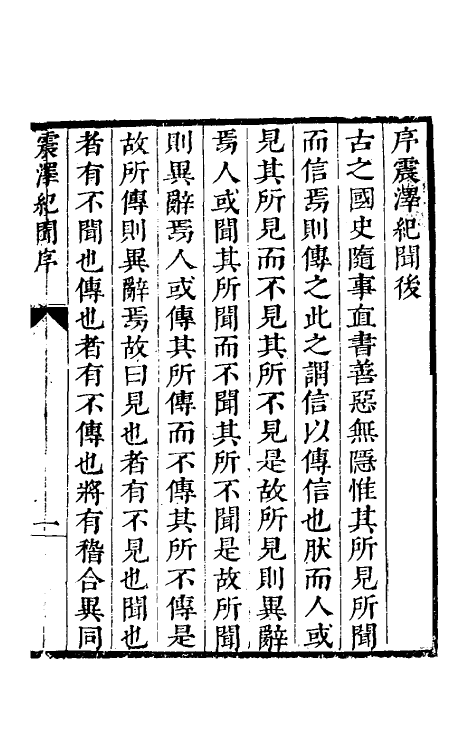 序震澤紀聞後
古之國史隨事直書善惡無隱惟其所見所聞
而信焉則傳之此之謂信以傳信也肰而人或
見其所見而不見其所不見是故所見則異辭
焉人或聞其所聞而不聞其所不聞是故所聞
則異辭焉人或傳其所傳而不傳其所不傳是
故所傳則異辭焉故曰見也者有不見也聞也
者有不聞也傳也者有不傳也將有稽合異同
震澤紀聞序
一